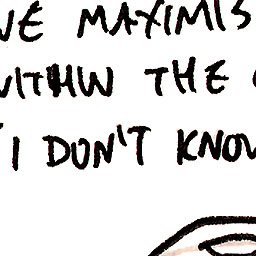 VE MAXIMIS
WITHIN THE
"I DON'T KNOW